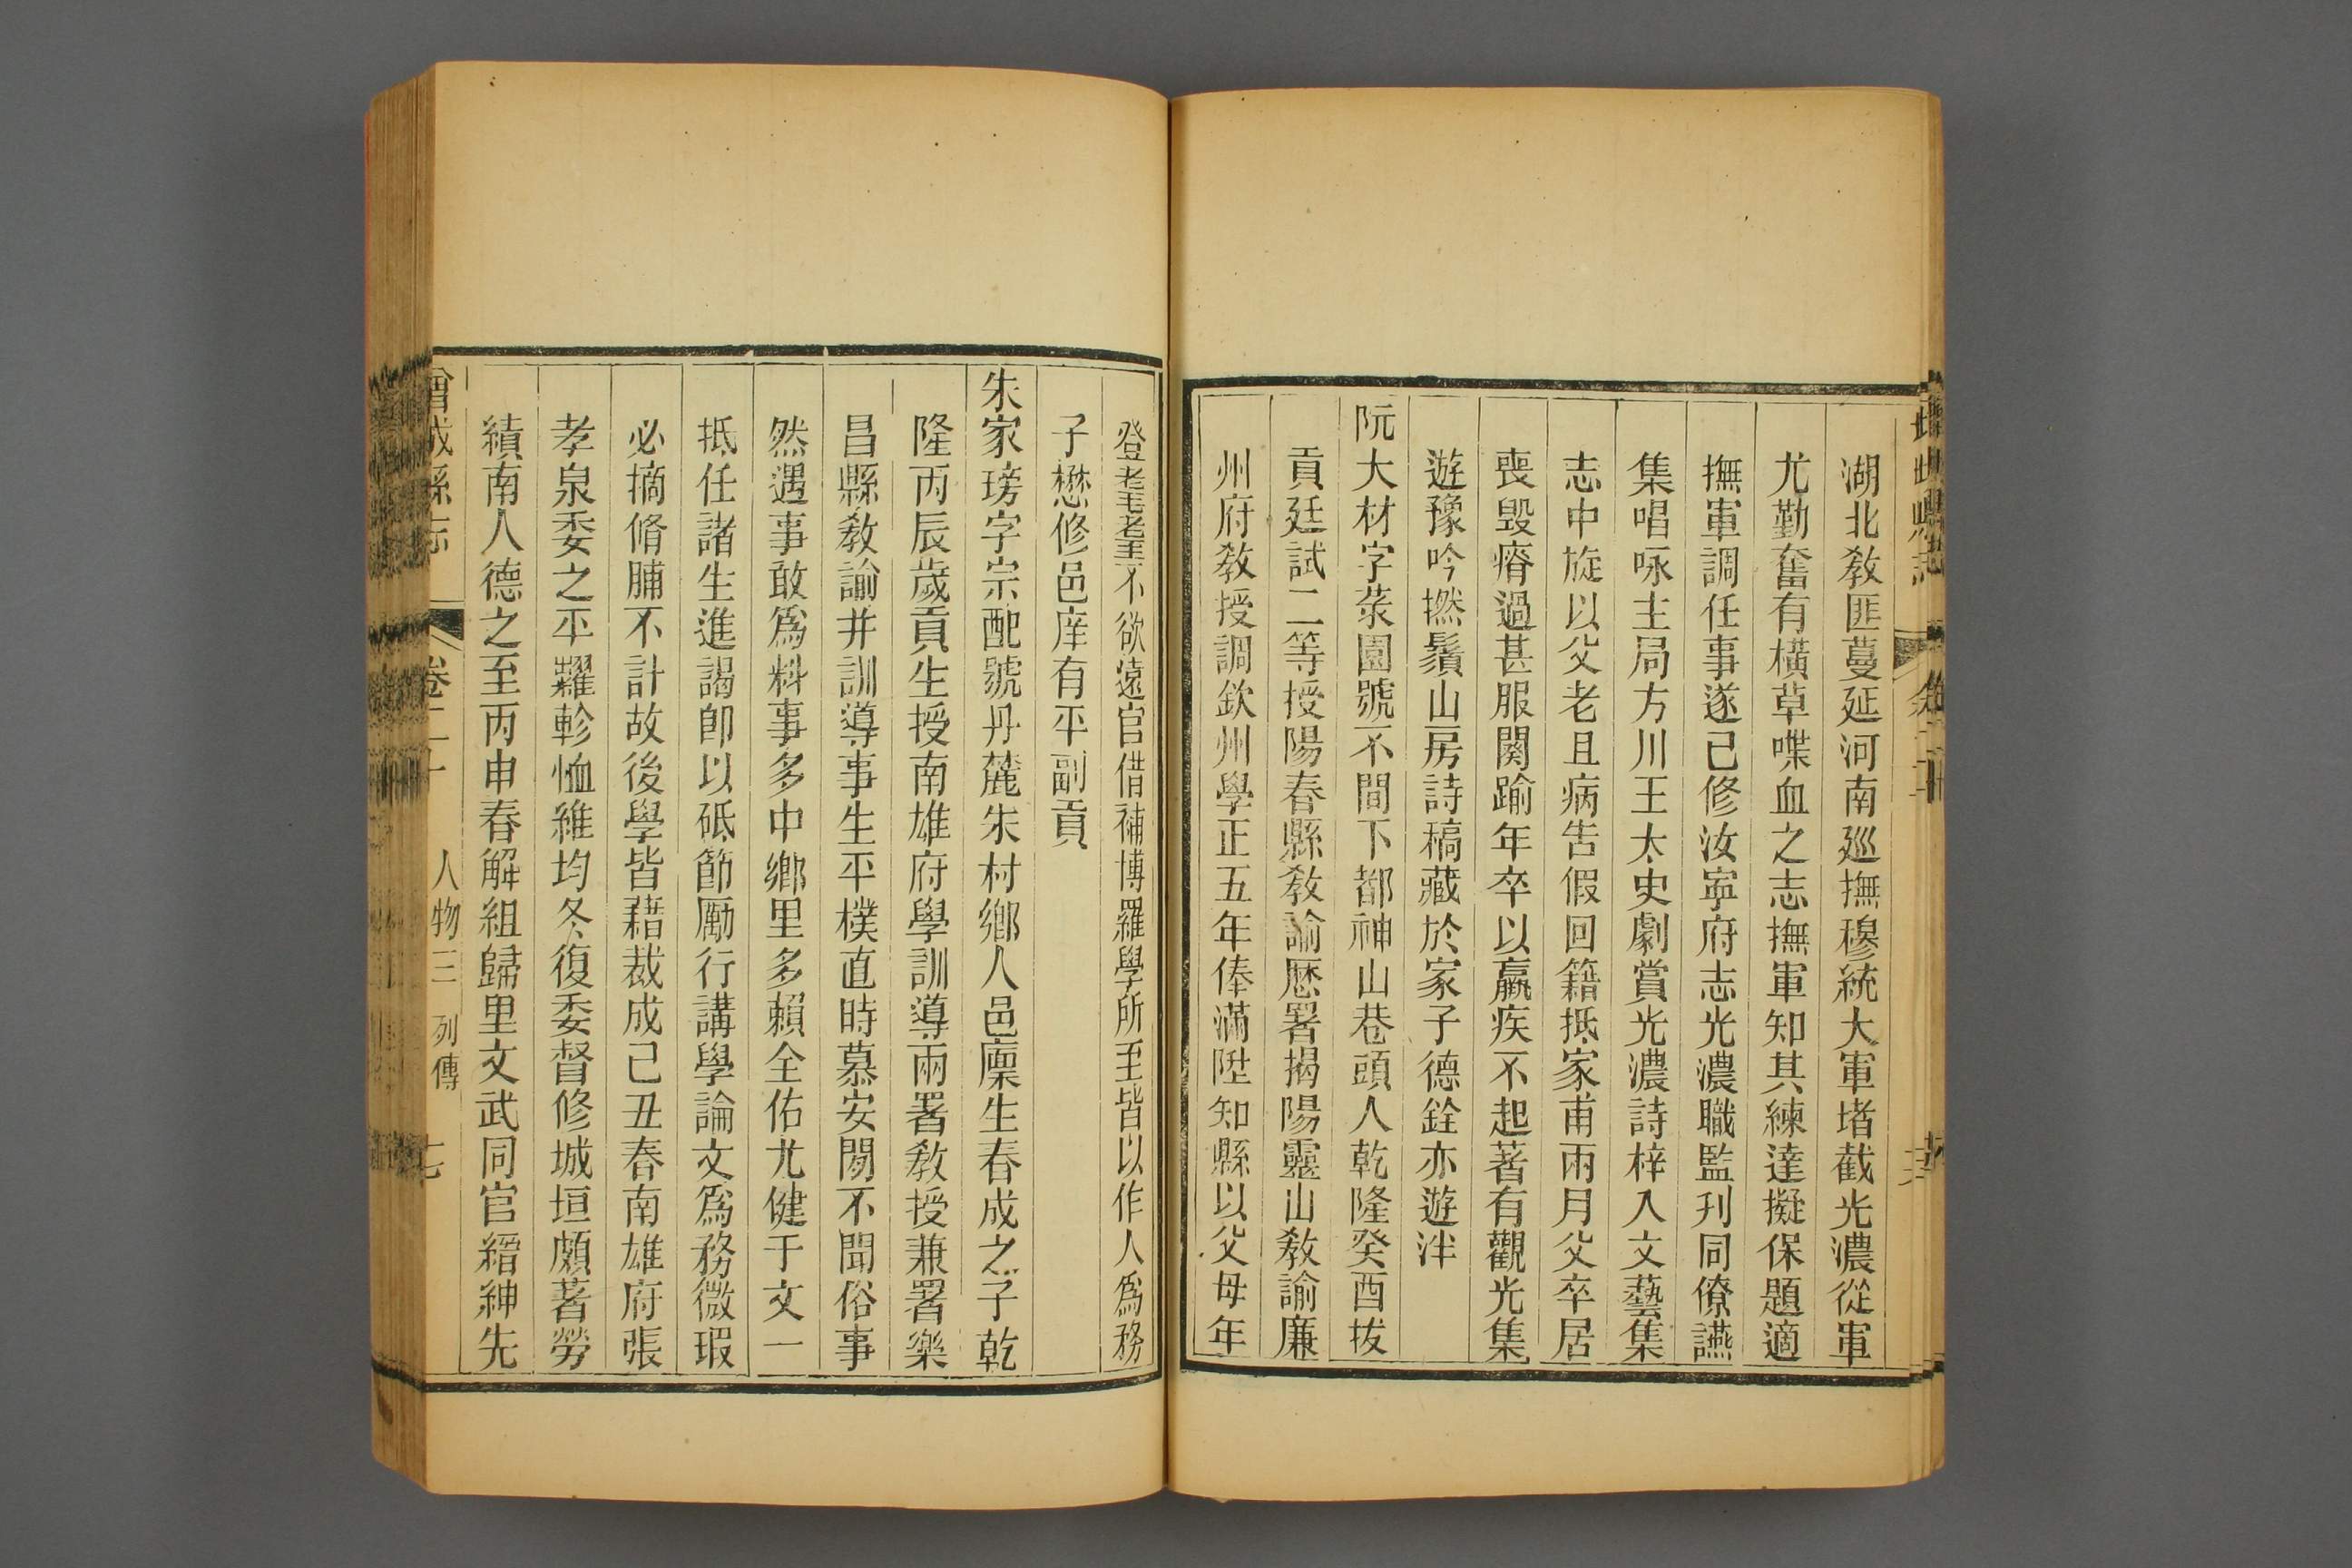 湖北教匪蔓延河南廵撫穆統大軍堵截光濃從軍
尤勤奮有橫草喋血之志撫軍知其練達擬保題適
撫軍調任事遂已修汝寧府志光濃職監刋同僚讌
集唱咏主局方川王太史劇賞光濃詩梓入文藝集
志中旋以父老且病吿假回籍抵家甫兩月父卒居
喪毁瘠過甚服闋踰年卒以羸疾不起著有觀光集
遊豫吟撚鬚山房詩稿藏於家子德銓亦遊泮
阮大材字蒅園號不間下都神山巷頭人乾隆癸酉拔
貢廷試二等授陽春縣教諭歷署揭陽靈山教諭廉
州府教授調欽州學正五年俸滿陞知縣以父母年
登耄耋不欲遠官借補博羅學所至皆以作人爲務
子懋修邑庠有平副貢
朱家瑜字宗配號丹麓朱村鄉人邑廩生春成之子乾
隆丙辰歲貢生授南雄府學訓導兩署教授兼署樂
昌縣教諭并訓導事生平樸直時慕安閒不聞俗事
然遇事敢爲料事多中鄉里多賴全佑尤健于文一
抵任諸生進謁卽以砥節勵行講學論文爲務微瑕
必摘脩脯不計故後學皆藉裁成己丑春南雄府張
孝泉委之平糶軫恤維均冬復委督修城垣頗著勞
績南人德之至丙申春解組歸里文武同官縉紳先
曾城縣志 卷二十 人物三 列傳 七